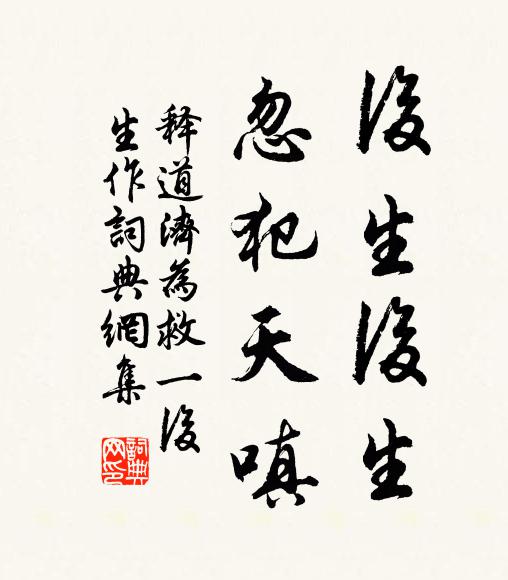 後生後生
忽犯天嗔
释道濟為救一後
生作詞典網集
詞典
网印